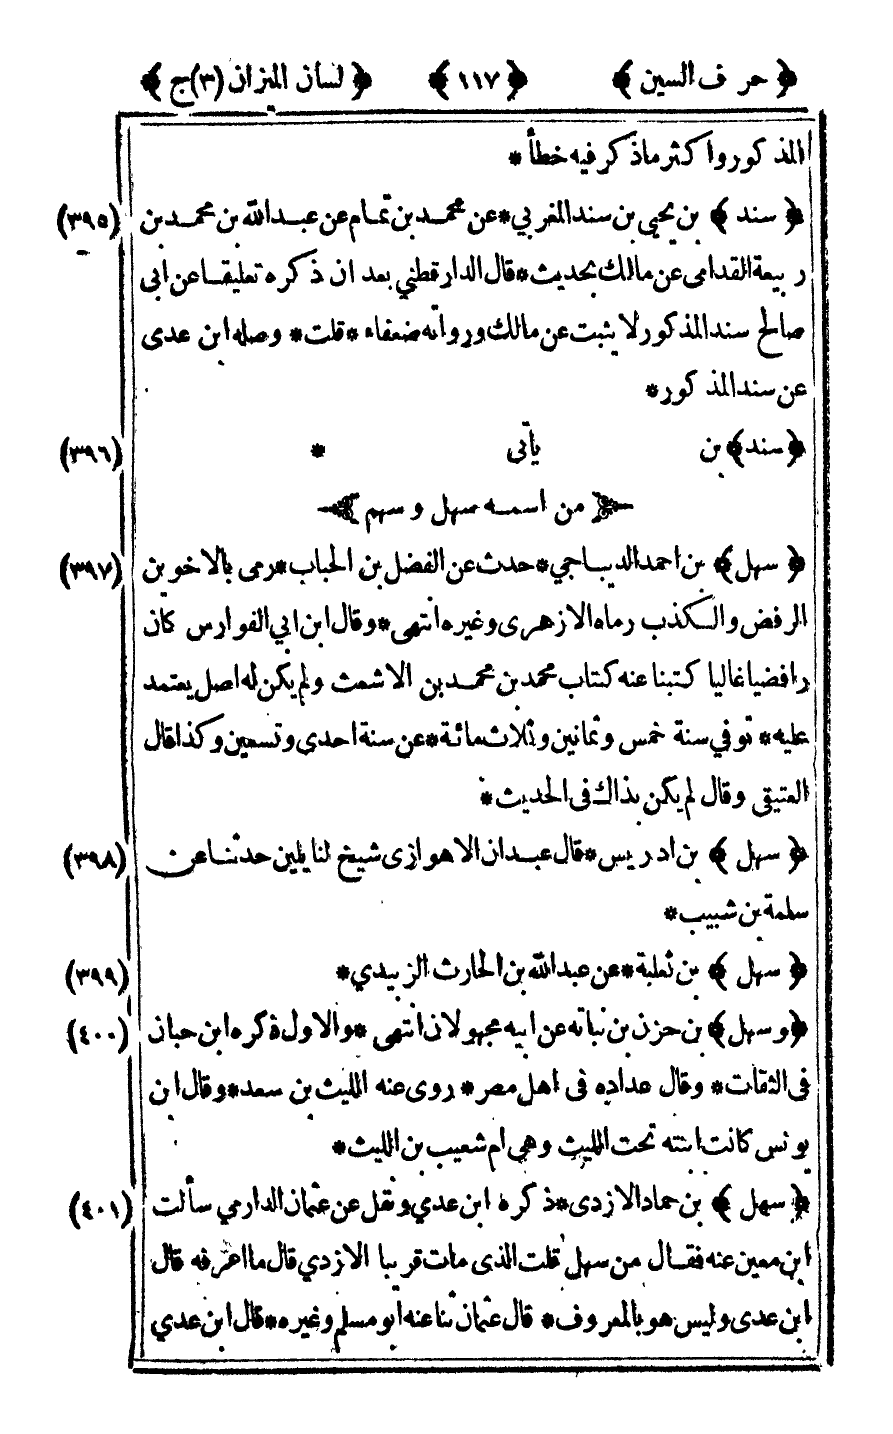 ﴿ حرف السين ﴾ ﴿ ١١٧ ﴾ ﴿ لسان الميزان (٣) ج ﴾
المذكور واكثر ماذكر فيه خطأ *
﴿ سند ﴾ بن يحيى بن سند المغربي * عن محمد بن تمام عن عبد الله بن محمد بن (٣٩٥)
ربيعة القدامى عن مالك بحديث * قال الدار قطني بعد ان ذكره تعليقا عن ابى
صالح سند المذكور لا يثبت عن مالك ورواته ضعفاء * قلت * وصله ابن عدى
عن سند المذكور *
﴿ سند ﴾ بن يأتى * (٣٩٦)
﴿ من اسمه سهل وسهم ﴾
﴿ سهل ﴾ بن احمد الديباجي * حدث عن الفضل بن الحباب * رمى بالاخوين (٣٩٧)
الرفض والكذب رماه الازهرى وغيره انتهى * وقال ابن ابي الفوارس كان
رافضيا غاليا كتبنا عنه كتاب محمد بن محمد بن الاشعث ولم يكن له اصل يعتمد
عليه * توفي سنة خمس وثمانين وثلاث مائة * عن سنة احدى وتسعين وكذا قال
العتيقي وقال لم يكن بذاك في الحديث *
﴿ سهل ﴾ بن ادريس * قال عبدان الاهوازى شيخ لنا يلين حدثنا عن (٣٩٨)
سلمة بن شبيب *
﴿ سهل ﴾ بن ثعلبة * عن عبد الله بن الحارث الزبيدي * (٣٩٩)
﴿ وسهل ﴾ بن حزن بن نباته عن ابيه مجهولان انتهى * والاول ذكره ابن حبان (٤٠٠)
في الثقات * وقال عداده في اهل مصر * روى عنه الليث بن سعد * وقال ابن
يونس كانت ابنته تحت الليث وهي ام شعيب بن الليث *
﴿ سهل ﴾ بن حماد الازدى * ذكره ابن عدي ونقل عن عثمان الدارمي سألت (٤٠١)
ابن معين عنه فقال من سهل قلت الذى مات قريبا الازدي قال ما اعرفه قال
ابن عدى وليس هو بالمعروف * قال عثمان ثنا عنه ابو مسلم وغيره * قال ابن عدي